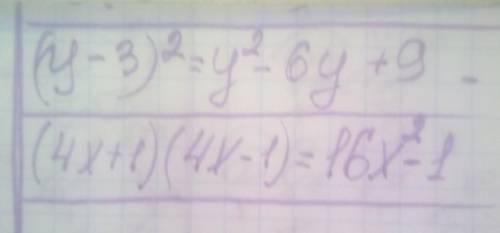 (y-3)²=y²-6y+9
(4x+1)(4x-1)=16x²-1